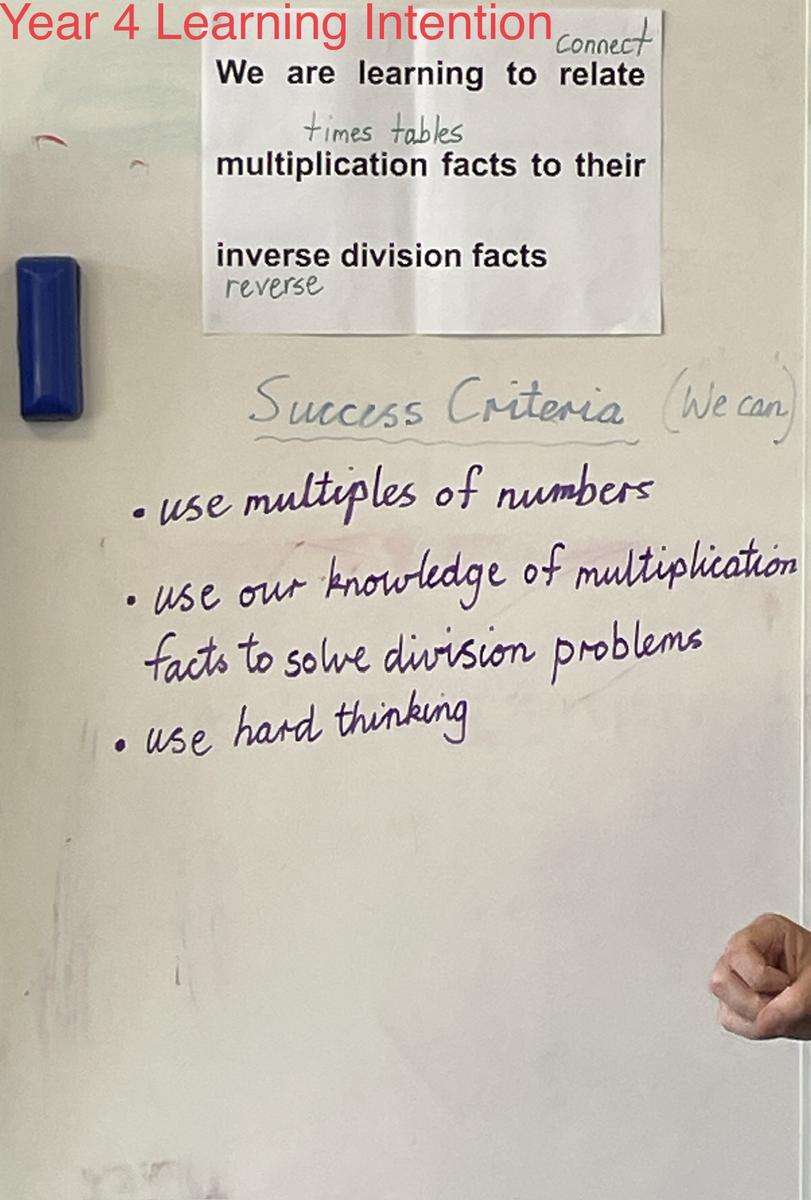 Year 4 Learning Intention
connect
We are learning to relate
times tables
multiplication facts to their
inverse division facts
reverse
Success Criteria (We can)
• use multiples of numbers
• use our knowledge of multiplication
facts to solve division problems
• use hard thinking